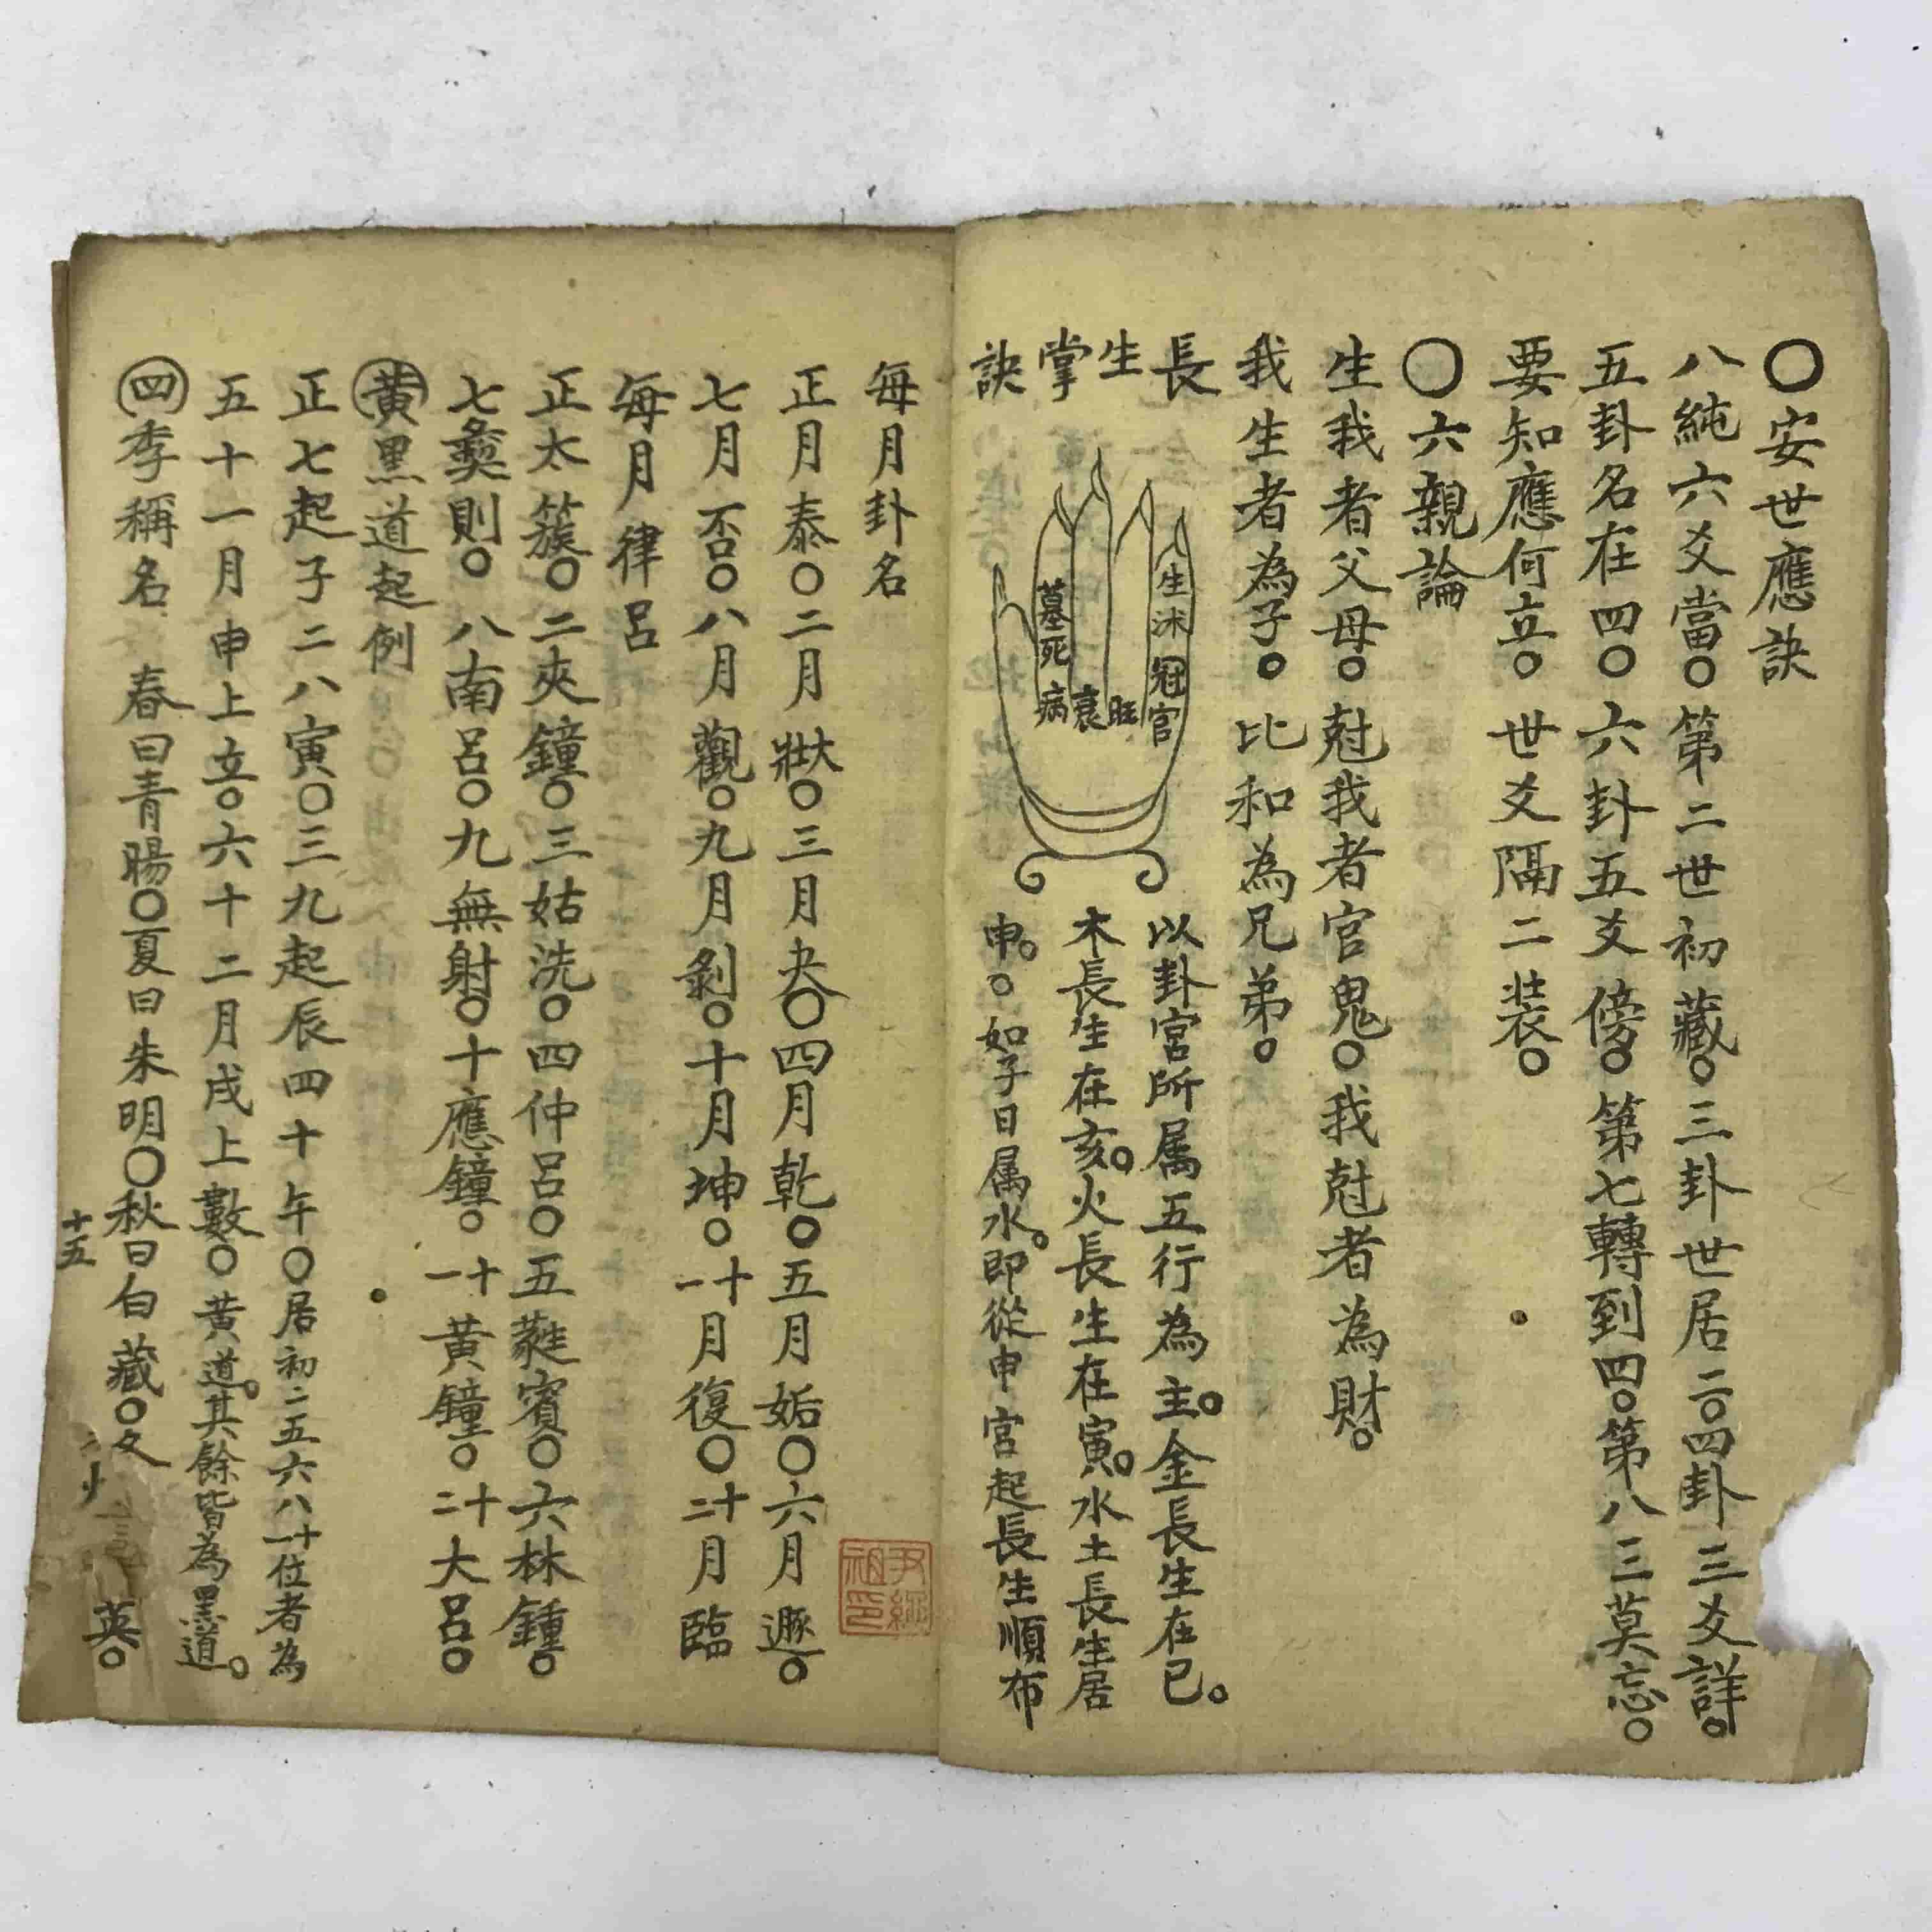 〇安世應訣
八純六爻當〇第二世初藏〇三卦世居二〇四卦三爻詳〇
五卦名在四〇六卦五爻傍〇第七轉到四〇第八三莫忘〇
要知應何立〇世爻隔二装〇
〇六親論
生我者父母〇尅我者官鬼〇我尅者為財〇
我生者為子〇比和為兄弟〇
長生掌訣
生沐冠官
旺
衰
墓死病
以卦宮所属五行為主〇金長生在巳〇
木長生在亥〇火長生在寅〇水土長生居
申〇〇如子日属水〇即從申宮起長生順布
每月卦名
正月泰〇二月大壯〇三月夬〇四月乾〇五月姤〇六月遯〇
七月否〇八月觀〇九月剝〇十月坤〇十一月復〇十二月臨
每月律呂
正太簇〇二夾鐘〇三姑洗〇四仲呂〇五蕤賓〇六林鍾〇
七彝則〇八南呂〇九無射〇十應鐘〇十一黄鐘〇十二大呂〇
黄黑道起例
正七起子二八寅〇三九起辰四十午〇居初二五六八十一位者為
五十一月申上立〇六十二月戌上數〇黄道〇其餘皆為黑道〇
四季稱名 春曰青暘〇夏曰朱明〇秋曰白藏〇冬 英〇
十五